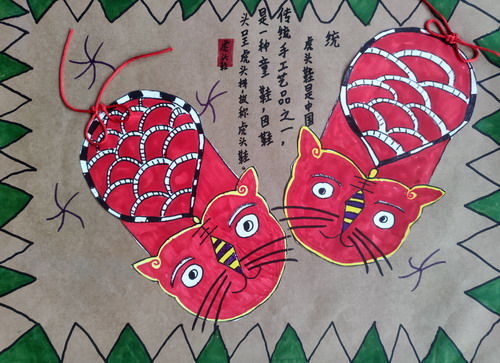 统
虎头鞋是中国
传统手工艺品之一，
是一种童鞋，因鞋
头呈虎头样故称虎头鞋。
虎头鞋